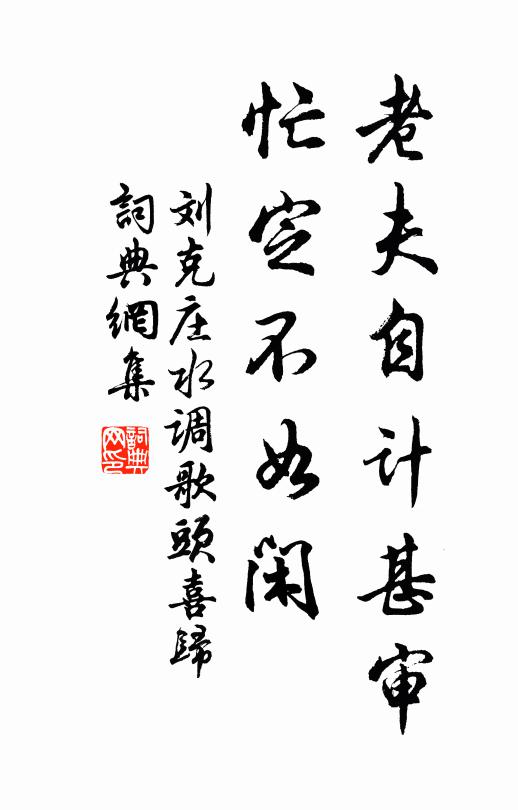 老夫自计甚审
忙定不如闲
刘克庄水调歌頭喜歸
詞典網集
詞典网印